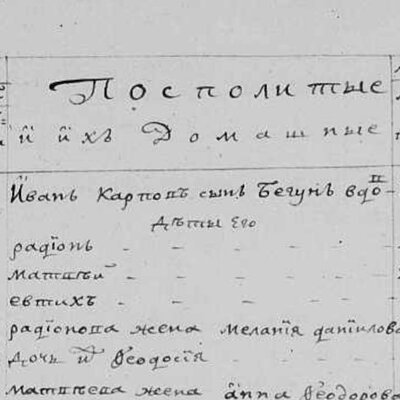 Посполитые
и ихъ Домашные
Иванъ Карповъ сынъ Бегунъ вдо-
дѣти его
радїонъ
матвѣй
евтихъ
радїонова жена мелания данїилова
дочь Ѳеодосїя
матвѣева жена анна Ѳеодорова